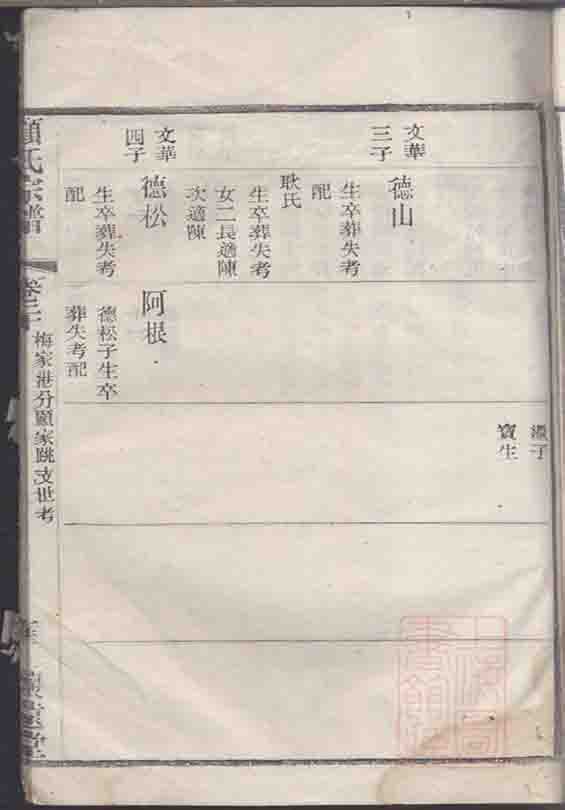 繼子
寶生
文華
三子
德山
生卒葬失考
配
耿氏
生卒葬失考
女二長適陳
次適陳
文華
四子
德松
生卒葬失考
配
阿根
德松子生卒
葬失考配
顧氏宗譜
卷二十
梅家港分顧家跳支世考